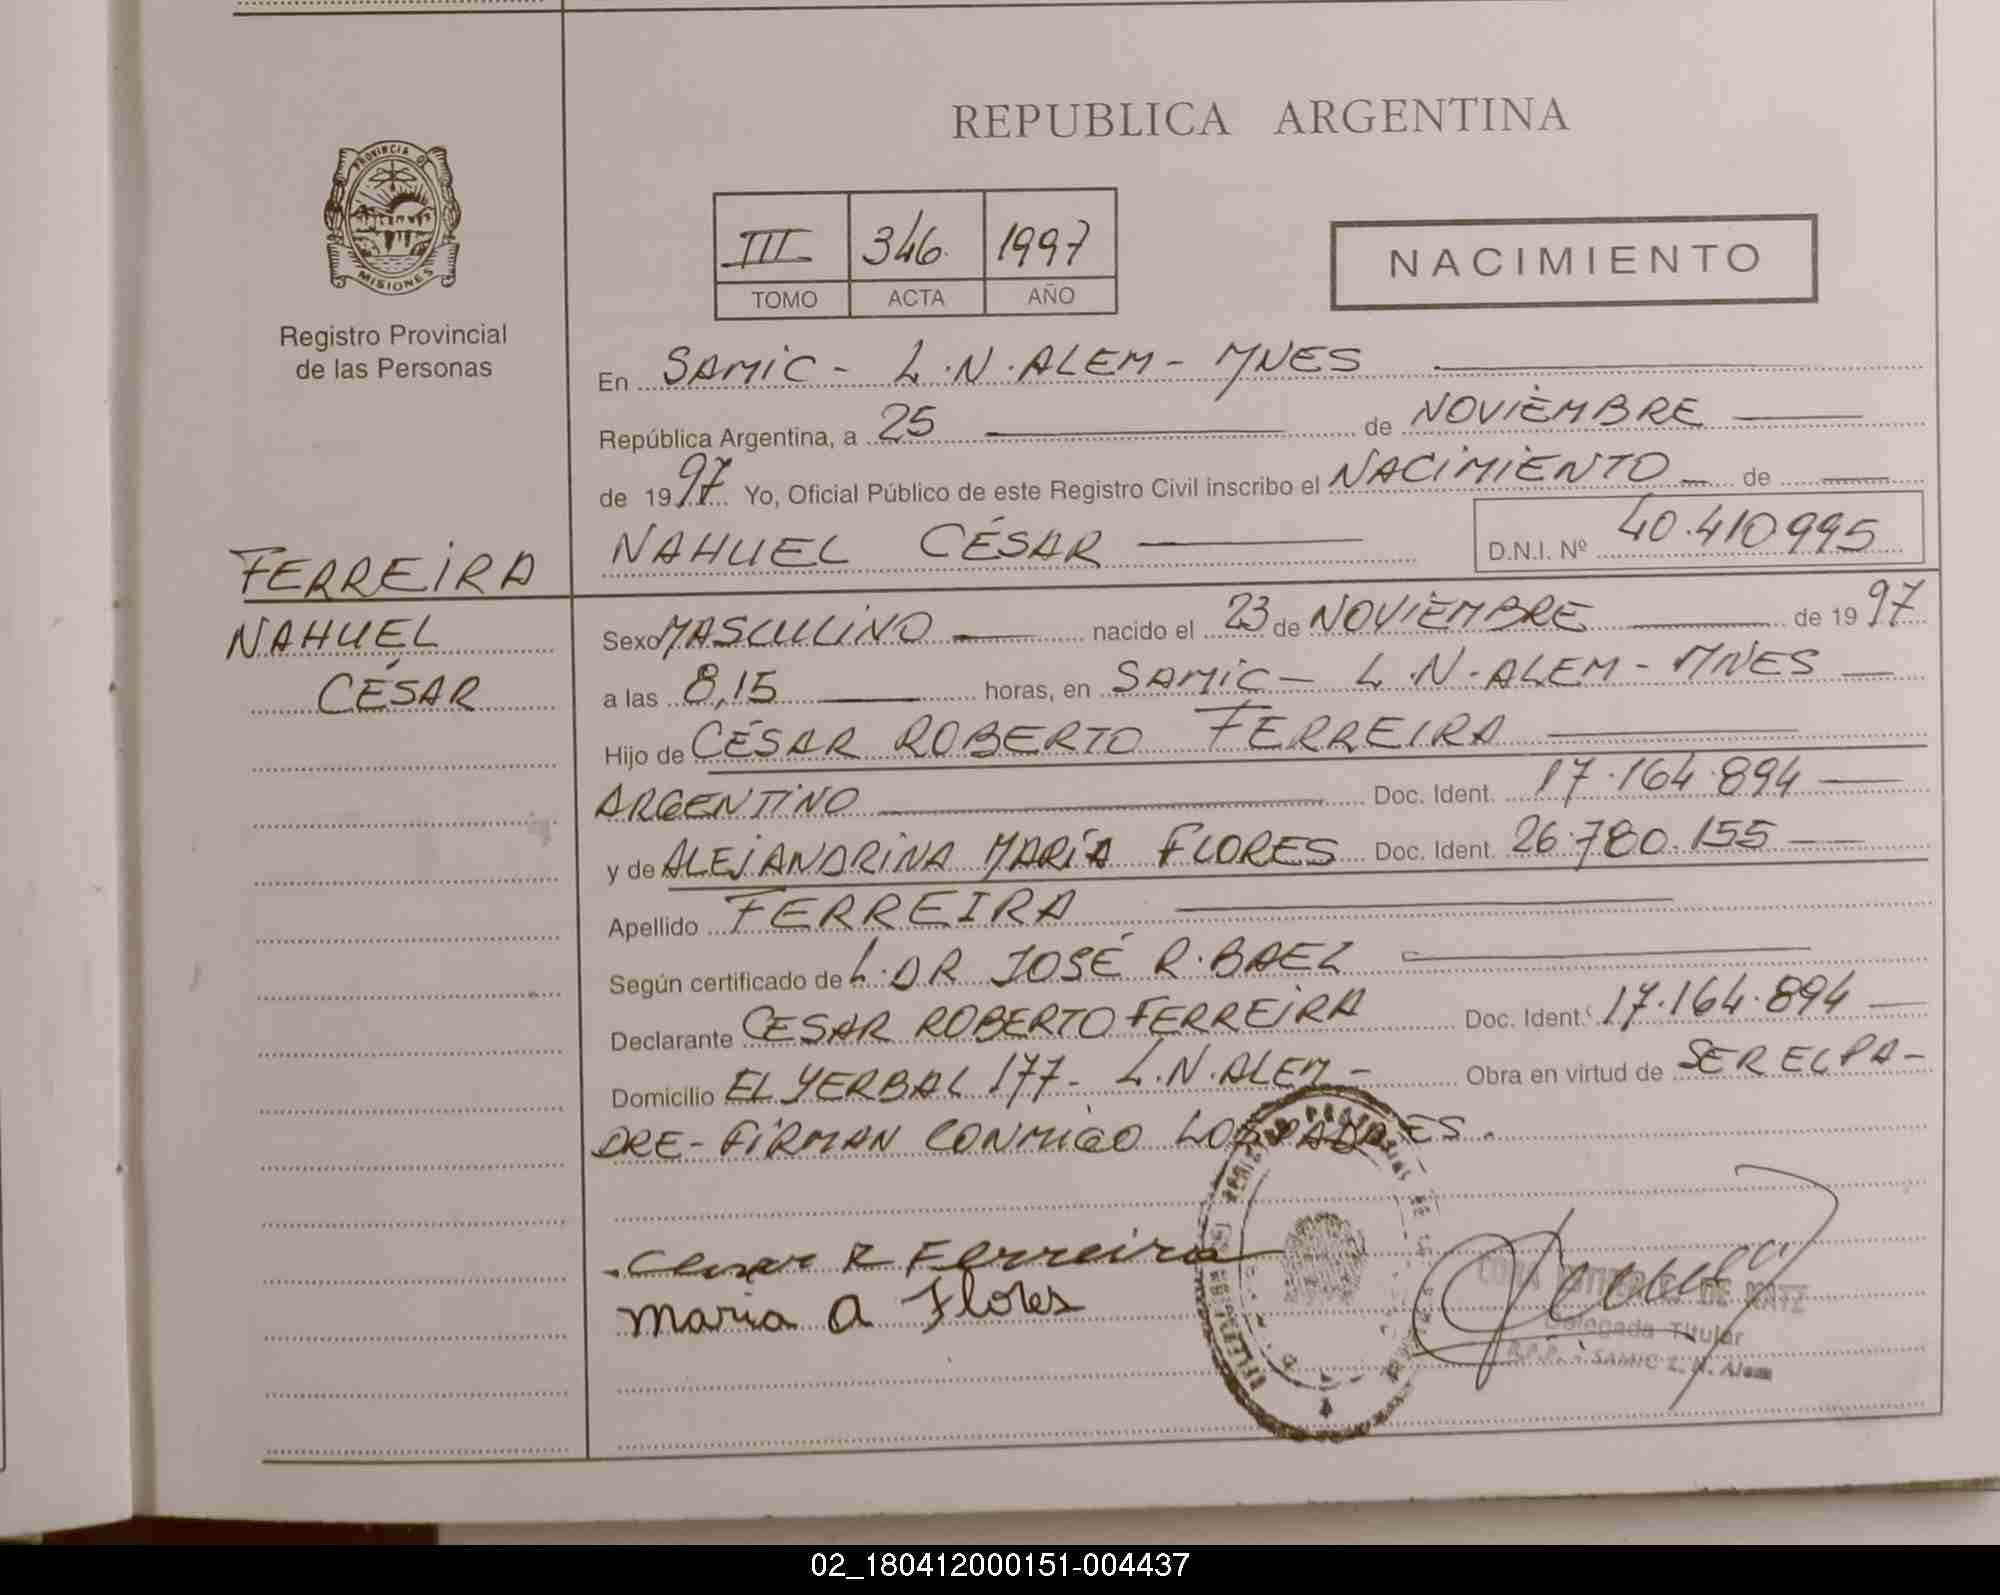 REPUBLICA ARGENTINA
PROVINCIA DE
MISIONES
Registro Provincial
de las Personas
III 346 1997
TOMO ACTA AÑO
NACIMIENTO
En SAMIC - L.N. ALEM - MNES
República Argentina, a 25 de NOVIEMBRE
de 1997 Yo, Oficial Público de este Registro Civil inscribo el NACIMIENTO de
NAHUEL CÉSAR D.N.I. Nº 40.410995
FERREIRA
NAHUEL
CÉSAR
Sexo MASCULINO nacido el 23 de NOVIEMBRE de 1997
a las 8,15 horas, en SAMIC - L.N. ALEM - MNES
Hijo de CÉSAR ROBERTO FERREIRA
ARGENTINO Doc. Ident. 17.164.894
y de ALEJANDRINA MARÍA FLORES Doc. Ident. 26.780.155
Apellido FERREIRA
Según certificado de L. DR JOSÉ R. BAEZ
Declarante CESAR ROBERTO FERREIRA Doc. Ident. 17.164.894
Domicilio EL YERBAL 177 - L.N. ALEM - Obra en virtud de SER EL PA-
DRE - FIRMAN CONMIGO LOS PADRES.
Cesar R Ferreira
Maria A Flores
DE KATZ
Delegada Titular
R.P.P. - SAMIC L. N. Alem
02_180412000151-004437